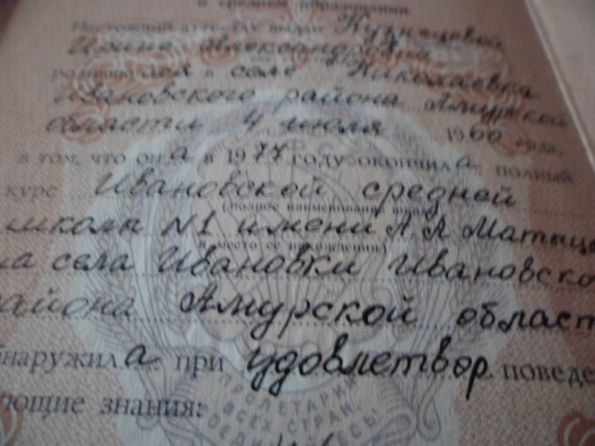 о среднем образовании
Настоящий аттестат выдан Кузнецовой
Ирине Александровне
родившейся в селе Николаевка
Ивановского района Амурской
области 4 июля 1960 года,
в том, что она в 1977 году окончила полный
курс Ивановской средней
(полное наименование школы
школа N1 имени Л. А. Матыцы
и место ее нахождения)
на села Ивановки Ивановско
района Амурской област
бнаружила при удовлетвор. поведе
ующие знания:
ПРОЛЕТАРИИ
ВСЕХ СТРАН,